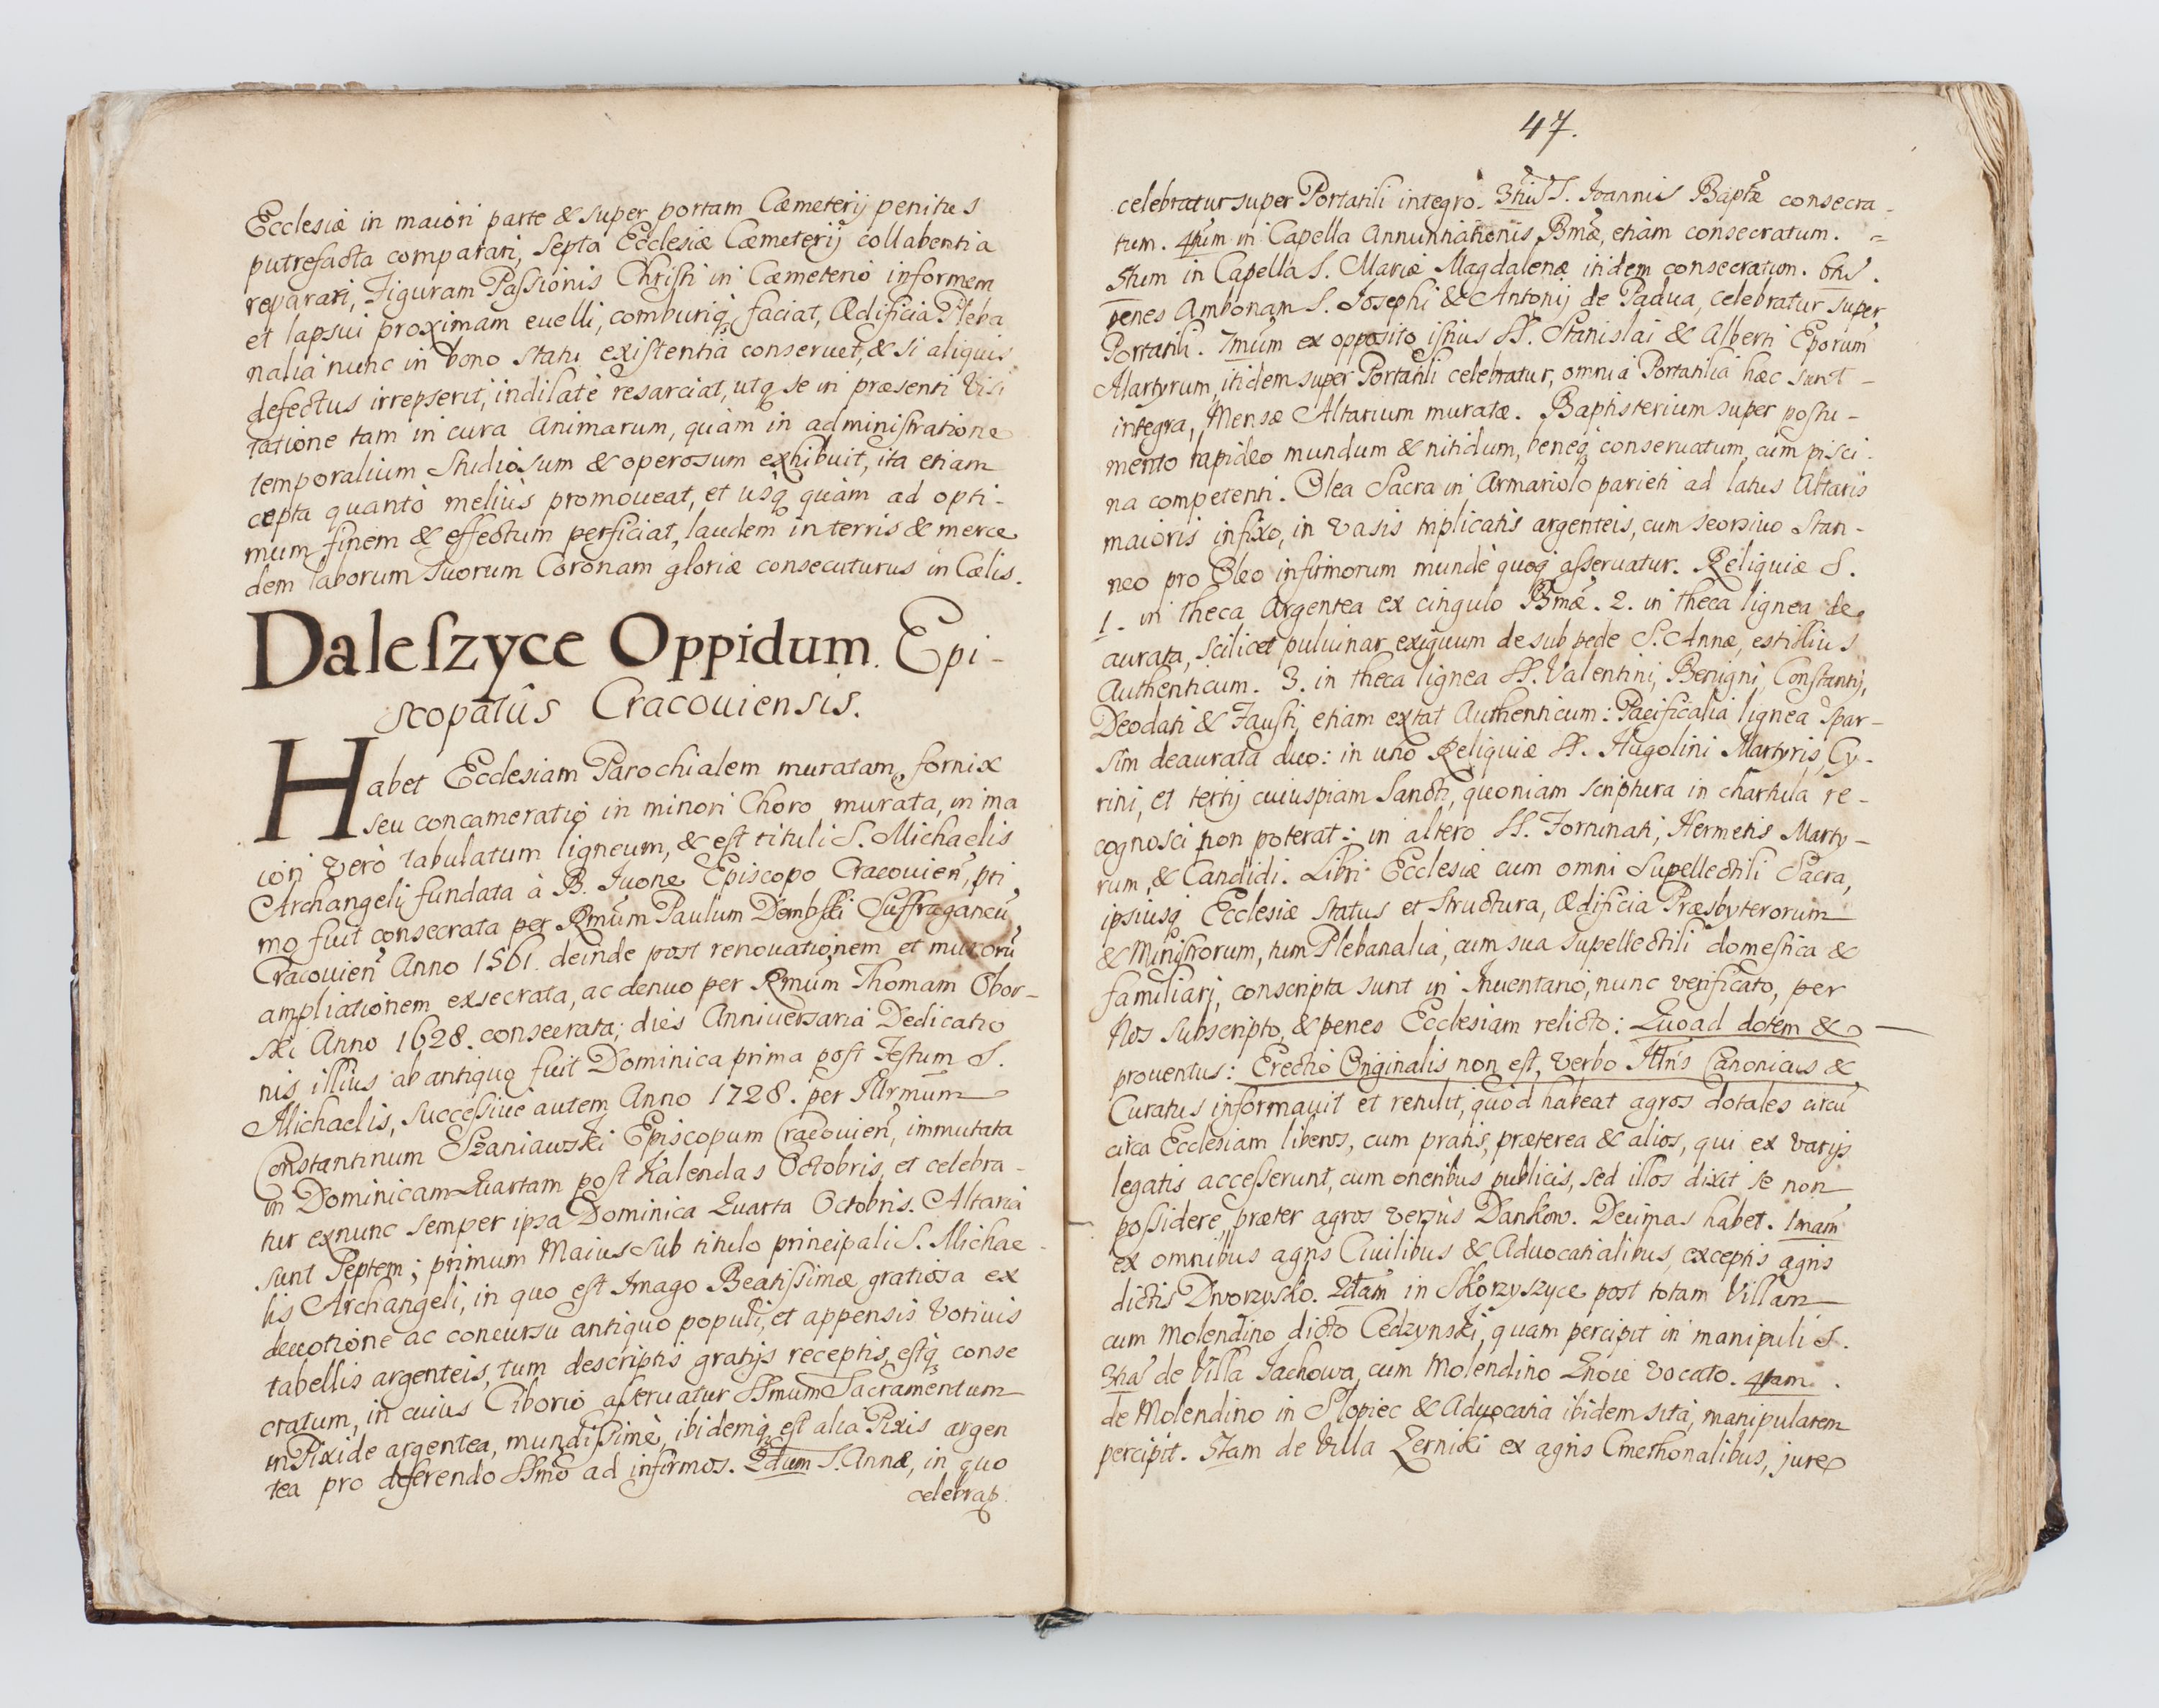 Ecclesiæ in maiori parte & super portam Cæmeterij penitus
putrefacta comparari, septa Ecclesiæ Cæmeterij collabentia
reparari, Figuram Passionis Christi in Cæmeterio informem
et lapsui proximam euelli, comburiq; faciat, Ædificia Pleba
nalia nunc in bono statu existentia conseruet, & si aliquis
defectus irrepserit, indilatè resarciat, utq; se in præsenti Visi
tatione tam in cura Animarum, quàm in administratione
temporalium studiosum & operosum exhibuit, ita etiam
cæpta quantò meliùs promoueat, et usq; quàm ad opti-
mum finem & effectum perficiat, laudem in terris & merce
dem laborum suorum Coronam gloriæ consecuturus in Cælis.
Daleszyce Oppidum. Epi-
scopatûs Cracouiensis.
Habet Ecclesiam Parochialem muratam, fornix
seu concameratio in minori Choro murata, in ma
iori verò tabulatum ligneum, & est tituli S. Michaelis
Archangeli fundata à B. Iuone Episcopo Cracouien̄, pri
mo fuit consecrata per Rm̄um Paulum Dembski Suffraganeū
Cracouien̄ Anno 1561. deinde post renouationem et murorū
ampliationem exsecrata, ac denuo per Rm̄um Thomam Obor-
ski Anno 1628. consecrata; dies Anniuersaria Dedicatio
nis illius ab antiquo fuit Dominica prima post Festum S.
Michaelis, successiue autem Anno 1728. per Illrm̄um
Constantinum Szaniawski Episcopum Cracouien̄, immutata
in Dominicam Quartam post Kalendas Octobris, et celebra-
tur exnunc semper ipsa Dominica Quarta Octobris. Altaria
sunt Septem; primum Maius sub titulo principali S. Michae-
lis Archangeli, in quo est Imago Beatissimæ gratiosa ex
deuotione ac concursu antiquo populi, et appensis Votiuis
tabellis argenteis, tum descriptis gratijs receptis, estq; conse
cratum, in cuius Ciborio asseruatur SSmum Sacramentum
in Pixide argentea, mundissimè, ibidemq; est alia Pixis argen
tea pro deferendo SSmo ad infirmos. 2dum S. Annæ, in quo
celebrat̄.
47.
celebratur super Portatili integro. 3tiū S. Ioannis Baptæ consecra-
tum. 4tum in Capella Annuntiationis Bmæ, etiam consecratum. =
5tum in Capella S. Mariæ Magdalenæ itidem consecratum. 6tū.
penes Ambonam S. Josephi & Antonij de Padua, celebratur super
Portatili. 7mum ex opposito istius SS. Stanislai & Alberti Eporum
Martyrum, itidem super Portatili celebratur, omnia Portatilia hæc sunt -
integra, Mensæ Altarium muratæ. Baptisterium super postu-
mento lapideo mundum & nitidum, beneq; conseruatum, cum pisci-
na competenti. Olea Sacra in Armariolo parieti ad latus Altaris
maioris infixo, in vasis triplicatis argenteis, cum seorsiuo stan-
neo pro Oleo infirmorum mundè quoq; asseruatur. Reliquiæ S.
1. in theca Argentea ex cingulo Bmæ. 2. in theca lignea de
aurata, scilicet puluinar exiguum de sub pede S. Annæ, est illius
Authenticum. 3. in theca lignea SS. Valentini, Benigni, Constantij,
Deodati & Fausti, etiam extat Authenticum: Pacificalia lignea spar-
sim deaurata duo: in uno Reliquiæ SS. Hugolini Martyris, Cy-
rini, et tertij cuiuspiam Sancti, quoniam scriptura in chartula re-
cognosci non poterat: in altero SS. Fortunati, Hermetis Marty-
rum, & Candidi. Libri Ecclesiæ cum omni Supellectili Sacra,
ipsiusq; Ecclesiæ status et structura, Ædificia Præsbyterorum
& Ministrorum, tum Plebanalia, cum sua supellectili domestica &
familiari, conscripta sunt in Inuentario, nunc verificato, per
Nos subscripto, & penes Ecclesiam relicto: Quoad dotem &
prouentus: Erectio Originalis non est, verbo Illris Canonicus &
Curatus informauit et retulit, quod habeat agros dotales circū
circa Ecclesiam liberos, cum pratis, præterea & alios, qui ex varijs
legatis accesserunt, cum oneribus publicis, sed illos dixit se non
possidere, præter agros versùs Dankow. Decimas habet. 1mam
ex omnibus agris Ciuilibus & Aduocatialibus, exceptis agris
dictis Dworzysko. 2dam in Skorzyszyce post totam Villam
cum Molendino dicto Cedzynski, quam percipit in manipulis.
3tiā de Villa Jachowa, cum Molendino Znoie vocato. 4tam.
de Molendino in Slopiec & Aduocatia ibidem sita, manipularem
percipit. 5tam de Villa Zerniki ex agris Cmethonalibus, jure